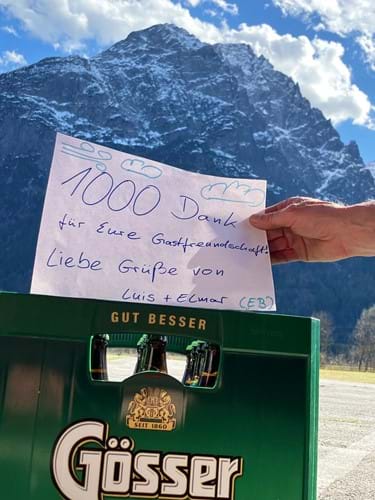 1000 Dank
für Eure Gastfreundschaft!
Liebe Grüße von
Luis + Elmar (EB)
GUT BESSER
SEIT 1860
Gösser